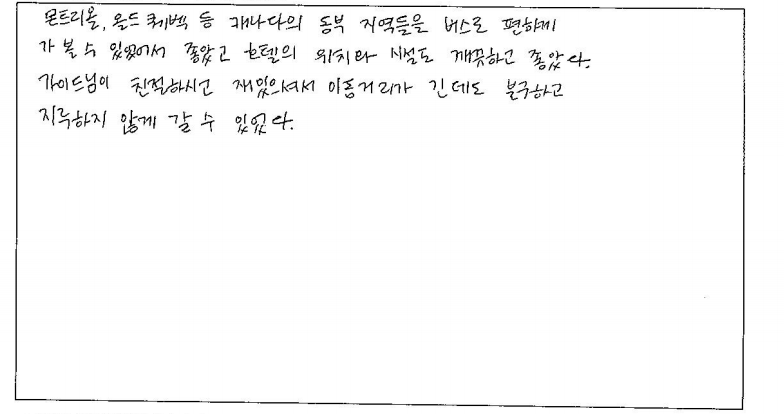 몬트리올, 올드퀘벡 등 캐나다의 동부 지역들을 버스로 편하게
가 볼 수 있었어서 좋았고 호텔의 위치와 시설도 깨끗하고 좋았다.
가이드님이 친절하시고 재밌으셔서 이동거리가 긴데도 불구하고
지루하지 않게 갈 수 있었다.